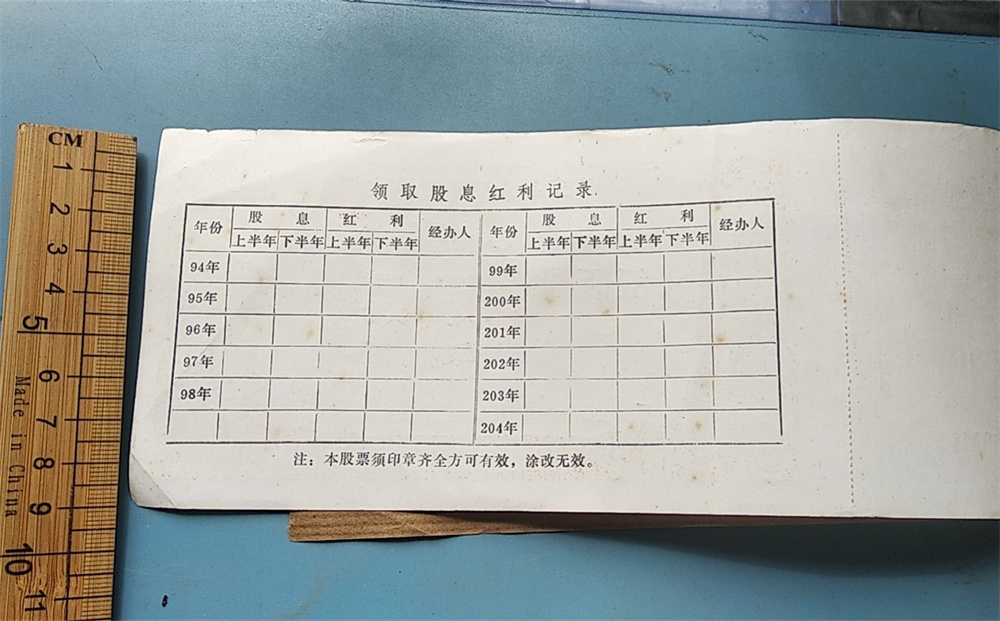 CM
1
2
3
4
5
6
7
8
9
10
11
Made in China
领取股息红利记录
年份 股息 红利 经办人 年份 股息 红利 经办人
上半年 下半年 上半年 下半年 上半年 下半年 上半年 下半年
94年 99年
95年 200年
96年 201年
97年 202年
98年 203年
204年
注：本股票须印章齐全方可有效，涂改无效。